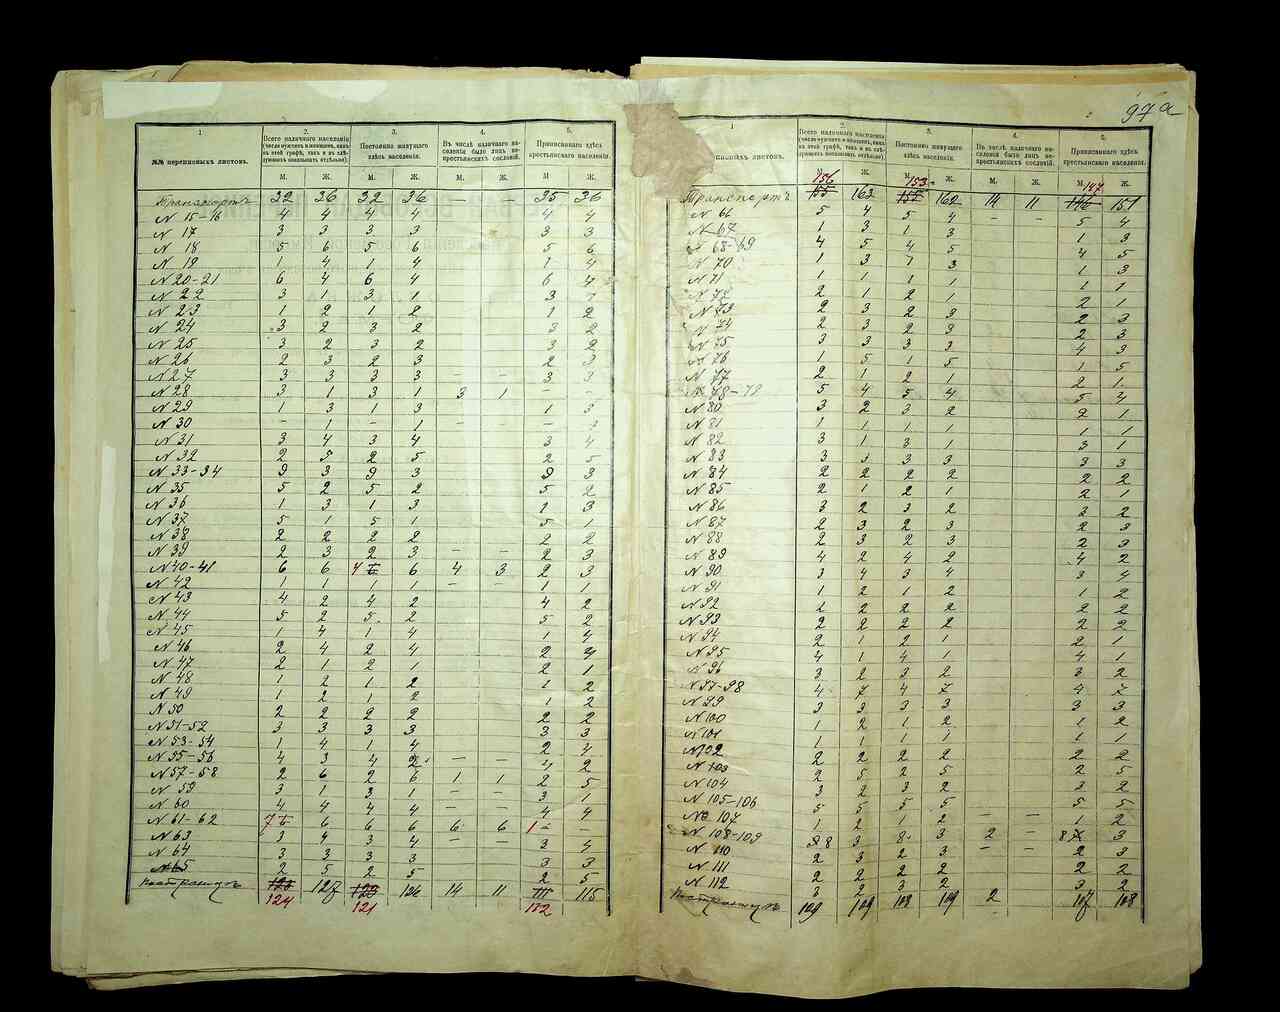 97а
1
2.
3.
4.
5.
№№ переписныхъ листовъ.
Всего наличнаго населенія
(число мужчинъ и женщинъ, какъ
въ этой графѣ, такъ и въ слѣ-
дующихъ показывать отдѣльно).
Постоянно живущаго
здѣсь населенія.
Въ числѣ наличнаго на-
селенія было лицъ не-
крестьянскихъ сословій.
Приписаннаго здѣсь
крестьянскаго населенія.
М. Ж. М. Ж. М. Ж. М. Ж.
Транспортъ 32 36 32 36 — — 35 36
N 15-16 4 4 4 4 4 4
N 17 3 3 3 3 3 3
N 18 5 6 5 6 5 6
N 19 1 4 1 4 1 4
N 20-21 6 4 6 4 6 4
N 22 3 1 3 1 3 1
N 23 1 2 1 2 1 2
N 24 3 2 3 2 3 2
N 25 3 2 3 2 3 2
N 26 2 3 2 3 2 3
N 27 3 3 3 3 — — 3 3
N 28 3 1 3 1 3 1 — -
N 29 1 3 1 3 1 3
N 30 — 1 — 1 — — — 1
N 31 3 4 3 4 3 4
N 32 2 5 2 5 2 5
N 33-34 9 3 9 3 9 3
N 35 5 2 5 2 5 2
N 36 1 3 1 3 1 3
N 37 5 1 5 1 5 1
N 38 2 2 2 2 2 2
N 39 2 3 2 3 — — 2 3
N 40-41 6 6 4 6 4 3 2 3
N 42 1 1 1 1 — — 1 1
N 43 4 2 4 2 4 2
N 44 5 2 5 2 5 2
N 45 1 4 1 4 1 4
N 46 2 4 2 4 2 4
N 47 2 1 2 1 2 1
N 48 1 2 1 2 1 2
N 49 1 2 1 2 1 2
N 50 2 2 2 2 2 2
N 51-52 3 3 3 3 3 3
N 53-54 1 4 1 4 2 4
N 55-56 4 3 4 2 — — 4 2
N 57-58 2 6 2 6 1 1 2 5
N 59 3 1 3 1 — — 3 1
N 60 4 4 4 4 — — 4 4
N 61-62 7 6 6 6 6 6 1 —
N 63 3 4 3 4 — — 3 4
N 64 3 3 3 3 3 3
N 65 2 5 2 5 2 5
123 127 123 126 14 11 111 115
124 121 112
1
2.
3.
4.
5.
листовъ.
Всего наличнаго населенія
(число мужчинъ и женщинъ, какъ
въ этой графѣ, такъ и въ слѣ-
дующихъ показывать отдѣльно).
Постоянно живущаго
здѣсь населенія.
Въ числѣ наличнаго на-
селенія было лицъ не-
крестьянскихъ сословій.
Приписаннаго здѣсь
крестьянскаго населенія.
М. Ж. М. Ж. М. Ж. М. Ж.
156 153 147
Транспортъ 155 163 155 162 14 11 146 151
N 66 5 4 5 4 — — 5 4
N 67 1 3 1 3 1 3
N 68-69 4 5 4 5 4 5
N 70 1 3 1 3 1 3
N 71 1 1 1 1 1 1
N 72 2 1 2 1 2 1
N 73 2 3 2 3 2 3
N 74 2 3 2 3 2 3
N 75 3 3 3 3 4 3
N 76 1 5 1 5 1 5
N 77 2 1 2 1 2 1
N 78-79 5 4 5 4 5 4
N 80 3 2 3 2 2 1
N 81 1 1 1 1 1 1
N 82 3 1 3 1 3 1
N 83 3 3 3 3 3 3
N 84 2 2 2 2 2 2
N 85 2 1 2 1 2 1
N 86 3 2 3 2 3 2
N 87 2 3 2 3 2 3
N 88 2 3 2 3 2 3
N 89 4 2 4 2 4 2
N 90 3 4 3 4 3 4
N 91 1 2 1 2 1 2
N 92 2 2 2 2 2 2
N 93 2 2 2 2 2 2
N 94 2 1 2 1 2 1
N 95 4 1 4 1 4 1
N 96 3 2 3 2 3 2
N 97-98 4 7 4 7 4 7
N 99 3 3 3 3 3 3
N 100 1 2 1 2 1 2
N 101 1 1 1 1 1 1
N 102 2 2 2 2 2 2
N 103 2 5 2 5 2 5
N 104 3 2 3 2 3 2
N 105-106 5 5 5 5 5 5
N 107 1 2 1 2 — — 1 2
N 108-109 8 3 8 3 2 — 8 3
N 110 2 3 2 3 — — 2 3
N 111 2 2 2 2 2 2
N 112 3 2 3 2 3 2
109 109 108 109 2 107 108